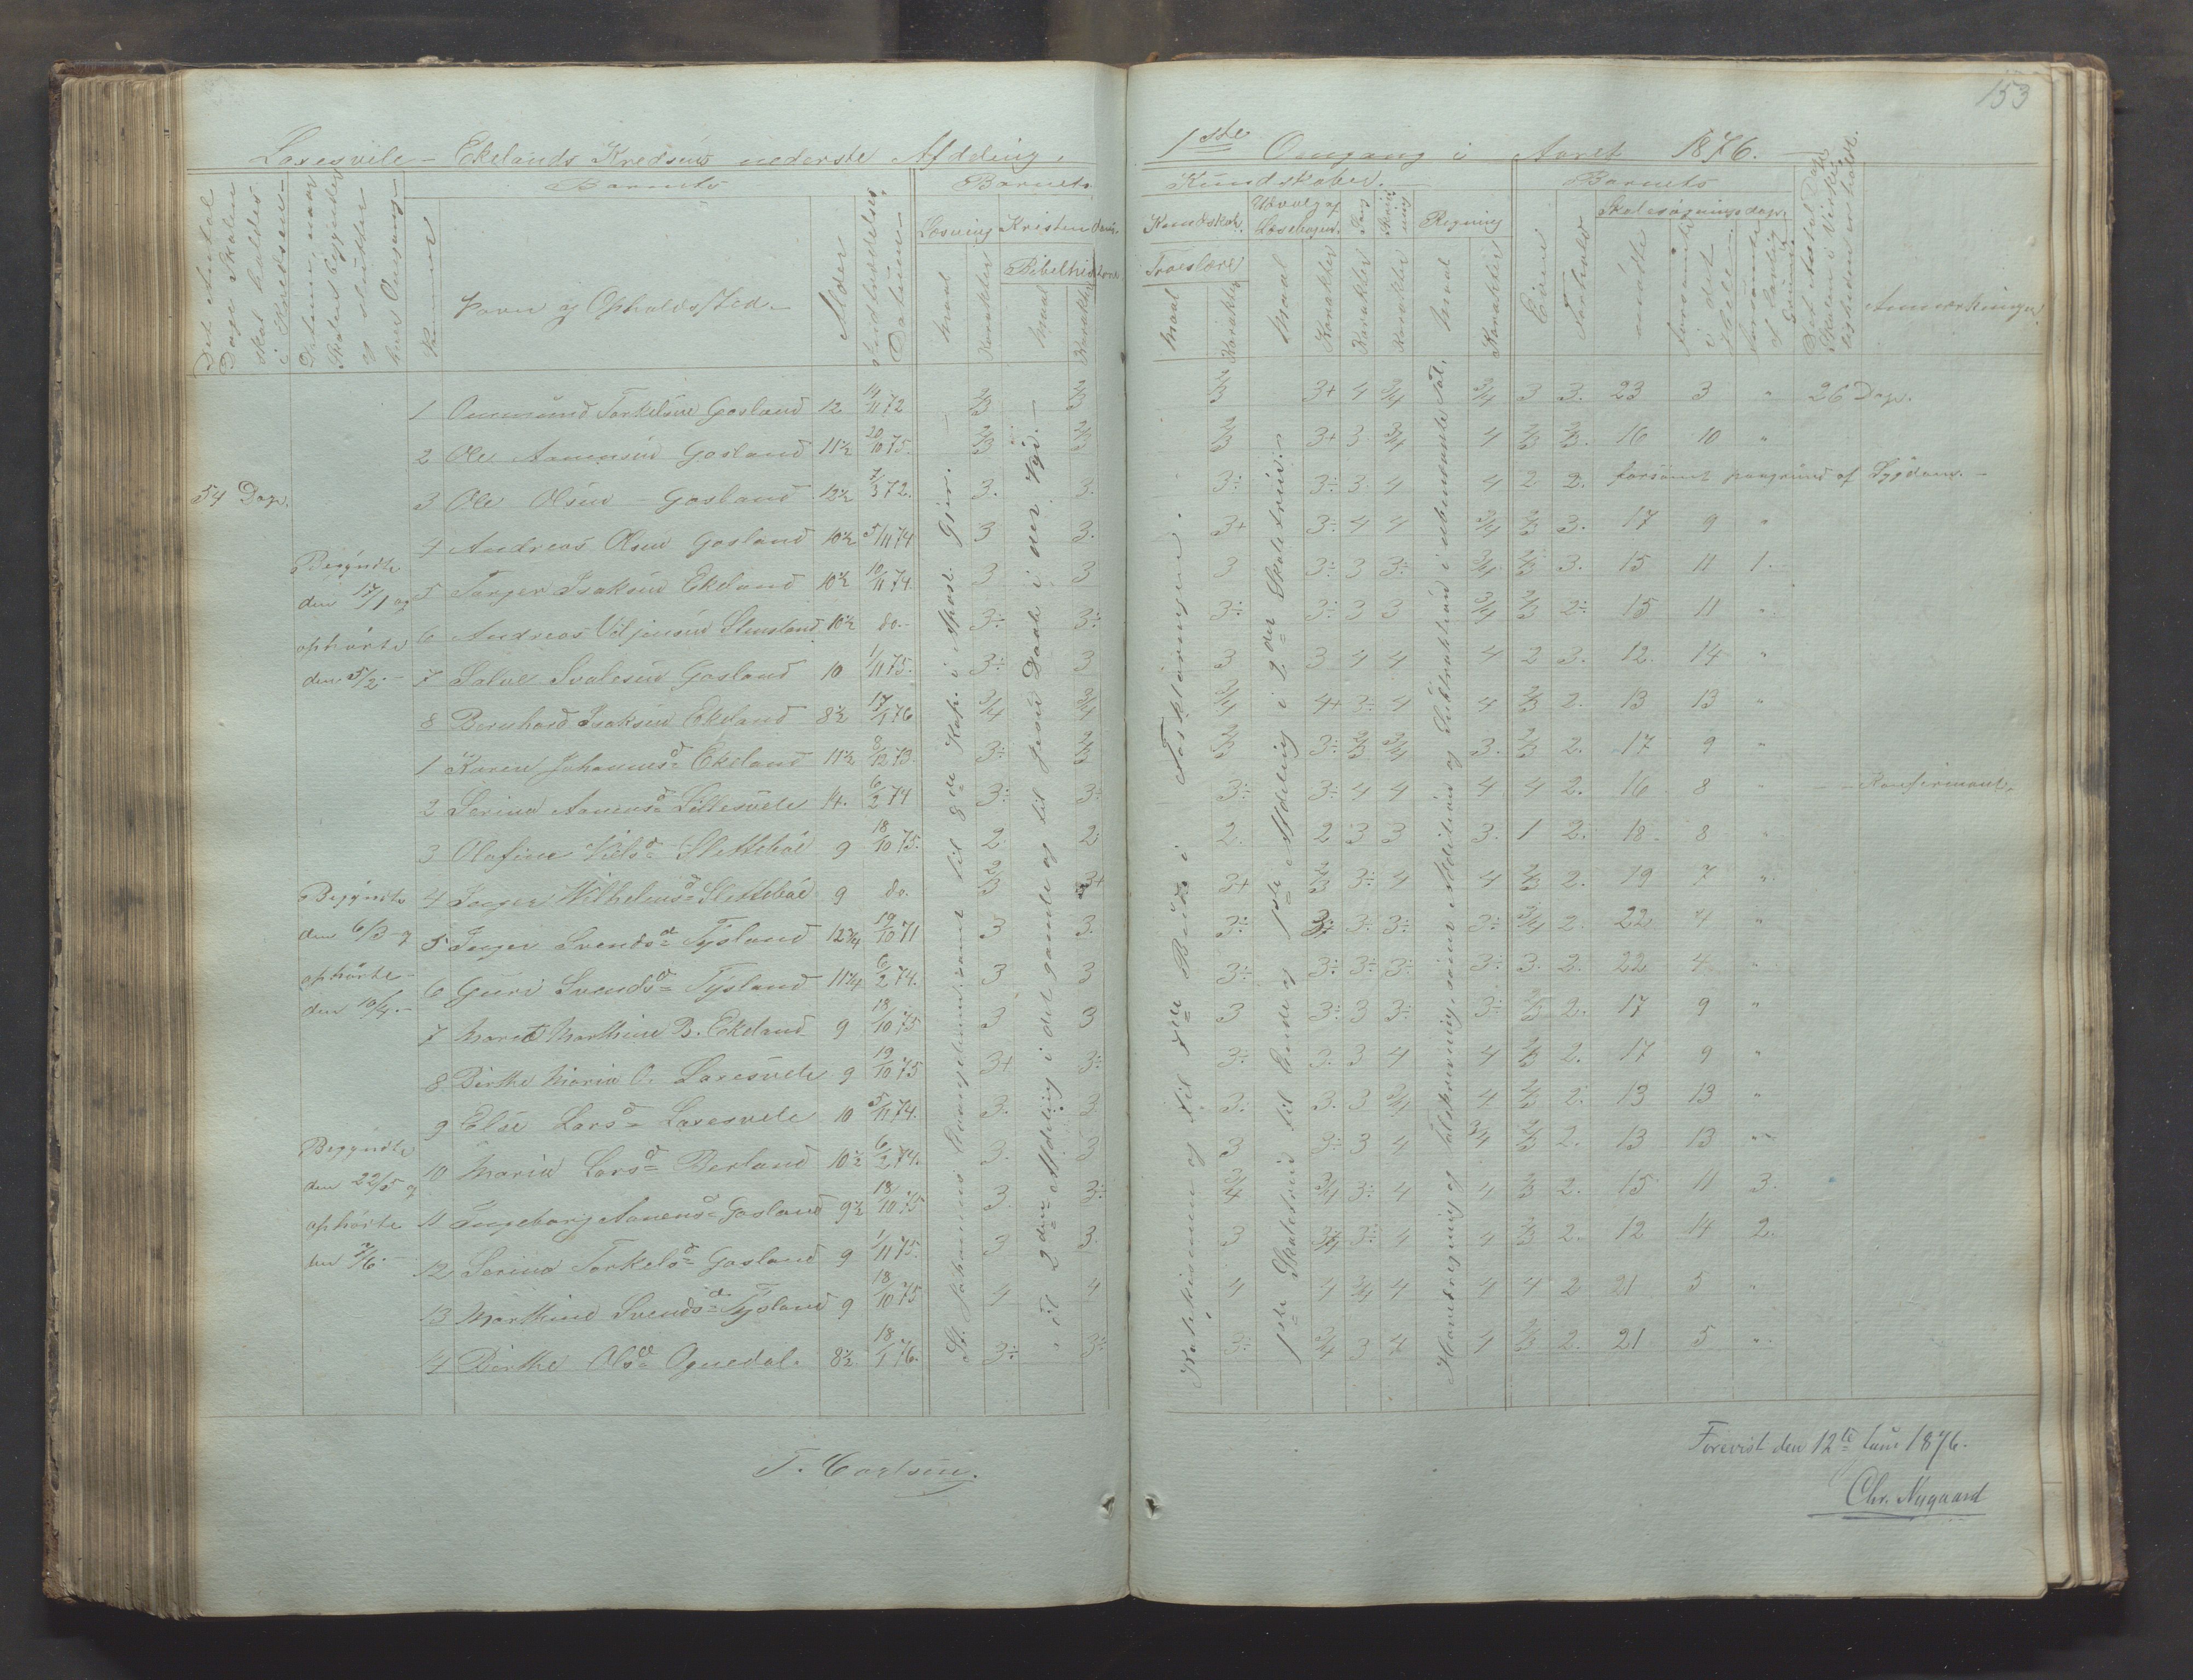 153
Laxesvele - Ekelands Kredsens nederste Afdeling,
1ste Omgang i Aaret 1876.
Det Antal Dage Skolen skal holdes i Kredsen
Datum, naar Skolen begynder og slutter hver Omgang
Barnets
Barnets
Kundskaber.
Barnets
Navn og Opholdssted.
Alder
Indtrædelses Datum
Læsning
Kristendoms
Kundskab.
Udvalg af Læsebogen.
Sang
Skriv ning
Regning
Bibelhistorie
Troeslære
Maal
Karakter
Maal
Karakter
Maal
Karakter
Maal
Karakter
Karakter
Karakter
Maal
Karakter
Evne
Forhold
Skolesøgningsdage
mødte
forsømte i det Hele
forsømte af lovlig Grund
Det Antal Dage Skolen i Virkeligheden er holdt.
Anmærkninger.
1 Ommund Torkelsen Gosland 12 14/11 72 2/3 2/3 2/3 3+ 4 3/4 3/4 3 3. 23 3 " 26 Dage.
2 Ole Aanensen Gosland 11½ 20/10 75. 2/3 2/3 2/3 3+ 3 3/4 4 2/3 2/3. 16 10 "
54 Dage.
3 Ole Olsen - Gosland 12½ 7/3 72. 3. 3. 3÷ 3÷ 3. 4 4 2 2. forsømt paagrund af Sygdom. -
4 Andreas Olsen Gosland 10½ 5/11 74 3 3. 3+ 3÷ 4 4 3/4 2/3 3. 17 9 "
5 Torger Isaksen Ekeland 10½ 10/11 74. 3 3 3 3÷ 3 3÷ 3/4 2/3 3. 15 11 1.
6 Andreas Viljensen Stensland 10½ do. 3÷ 3÷ 3÷ 3÷ 3 3 3/4 2/3 2÷ 15 11 "
7 Salve Svalesen Gosland 10 1/11 75. 3÷ 3 3 3 4 4 4 2 3. 12. 14 "
8 Bernhard Isaksen Ekeland 8½ 17/1 76 3/4 3/4 3/4 4+ 3÷ 4 4 2/3 2. 13 13 "
Begyndte
den 17/1 og
ophørte
den 5/2. -
1 Karen Johannesd. Ekeland 11½ 8/12 73. 3÷ 2/3 2/3 3÷ 2/3 3/4 3. 2/3 2. 17 9 "
2 Serina Aanensd. Lillesvele 14. 6/2 74 3÷ 3÷ 3÷ 3÷ 4 4 4 4 2. 16 8 " - - Konfirmant.
3 Olafine Nilsd. Slettebøe 9 18/10 75. 2 2 2. 2 3 3 3. 1 2. 18 8 "
4 Inger Wilhelmsd. Slettebøe 9 do. 2/3 3+ 3+ 2/3 3÷ 4 4 2/3 2. 19 7 "
5 Inger Svendsd. Tysland 12¾ 19/10 71 3 3. 3÷ 3÷ 3÷ 3÷ 3÷ 3/4 2. 22 4 "
6 Guri Svendsd. Tysland 11¼ 6/2 74. 3 3 3÷ 3÷ 3÷ 3÷ 3÷ 3. 2. 22 4 "
Begyndte
den 6/3 - og
ophørte -
den 10/4. -
7 Maret Marthine B. Ekeland 9 18/10 75 3 3 3 3÷ 3 3÷ 3÷ 2/3 2. 17 9 "
8 Birthe Maria O. Laxesvele 9 19/10 75 3+ 3÷ 3÷ 3. 3 4 4 2/3 2. 17 9 "
9 Else Larsd. Laxesvele 10 5/11 74. 3. 3. 3. 3. 3 3/4 4 2/3 2. 13 13 "
10 Maria Larsd. Berland 10½ 6/2 74. 3. 3 3 3÷ 3 4 3/4 2/3 2. 13 13 "
11 Ingeborg Aanensd. Gosland 9½ 18/10 75 3. 3÷ 3/4 3/4 3÷ 4 4 2/3 2. 15 11 3.
12 Serina Torkelsd. Gosland 9 1/11 75. 3 3. 3 3/4 3÷ 4 4 2/3 2. 12 14 2.
13 Marthine Svendsd. Tysland 9 18/10 75 4 4 4 4 3/4 4 4 4 2 21 5 "
14 Birthe Olsd. Ognedal. 8½ 18/1 76. 3÷ 3÷ 3÷ 3/4 3 4 4 2/3 2. 21 5 "
Begyndte
den 22/5 og
ophørte
den 7/6. -
St. Johannes Evangelium samt til 8de Kap. i Apost. Gjer. -
til 2den Afdeling i det gamle og til Jesu Daab i det Nye. -
Katekismen og til 7de Bud i Forklaringen. -
1ste Skoletrin til Ende og 1ste Afdeling i 2det Skoletrin. -
Hovedregning og Talskrivning, samt Addition og Subtraktion i ubenævnte Tal.
T. Carlsen.
Forevist den 12te Juni 1876.
Chr. Nygaard